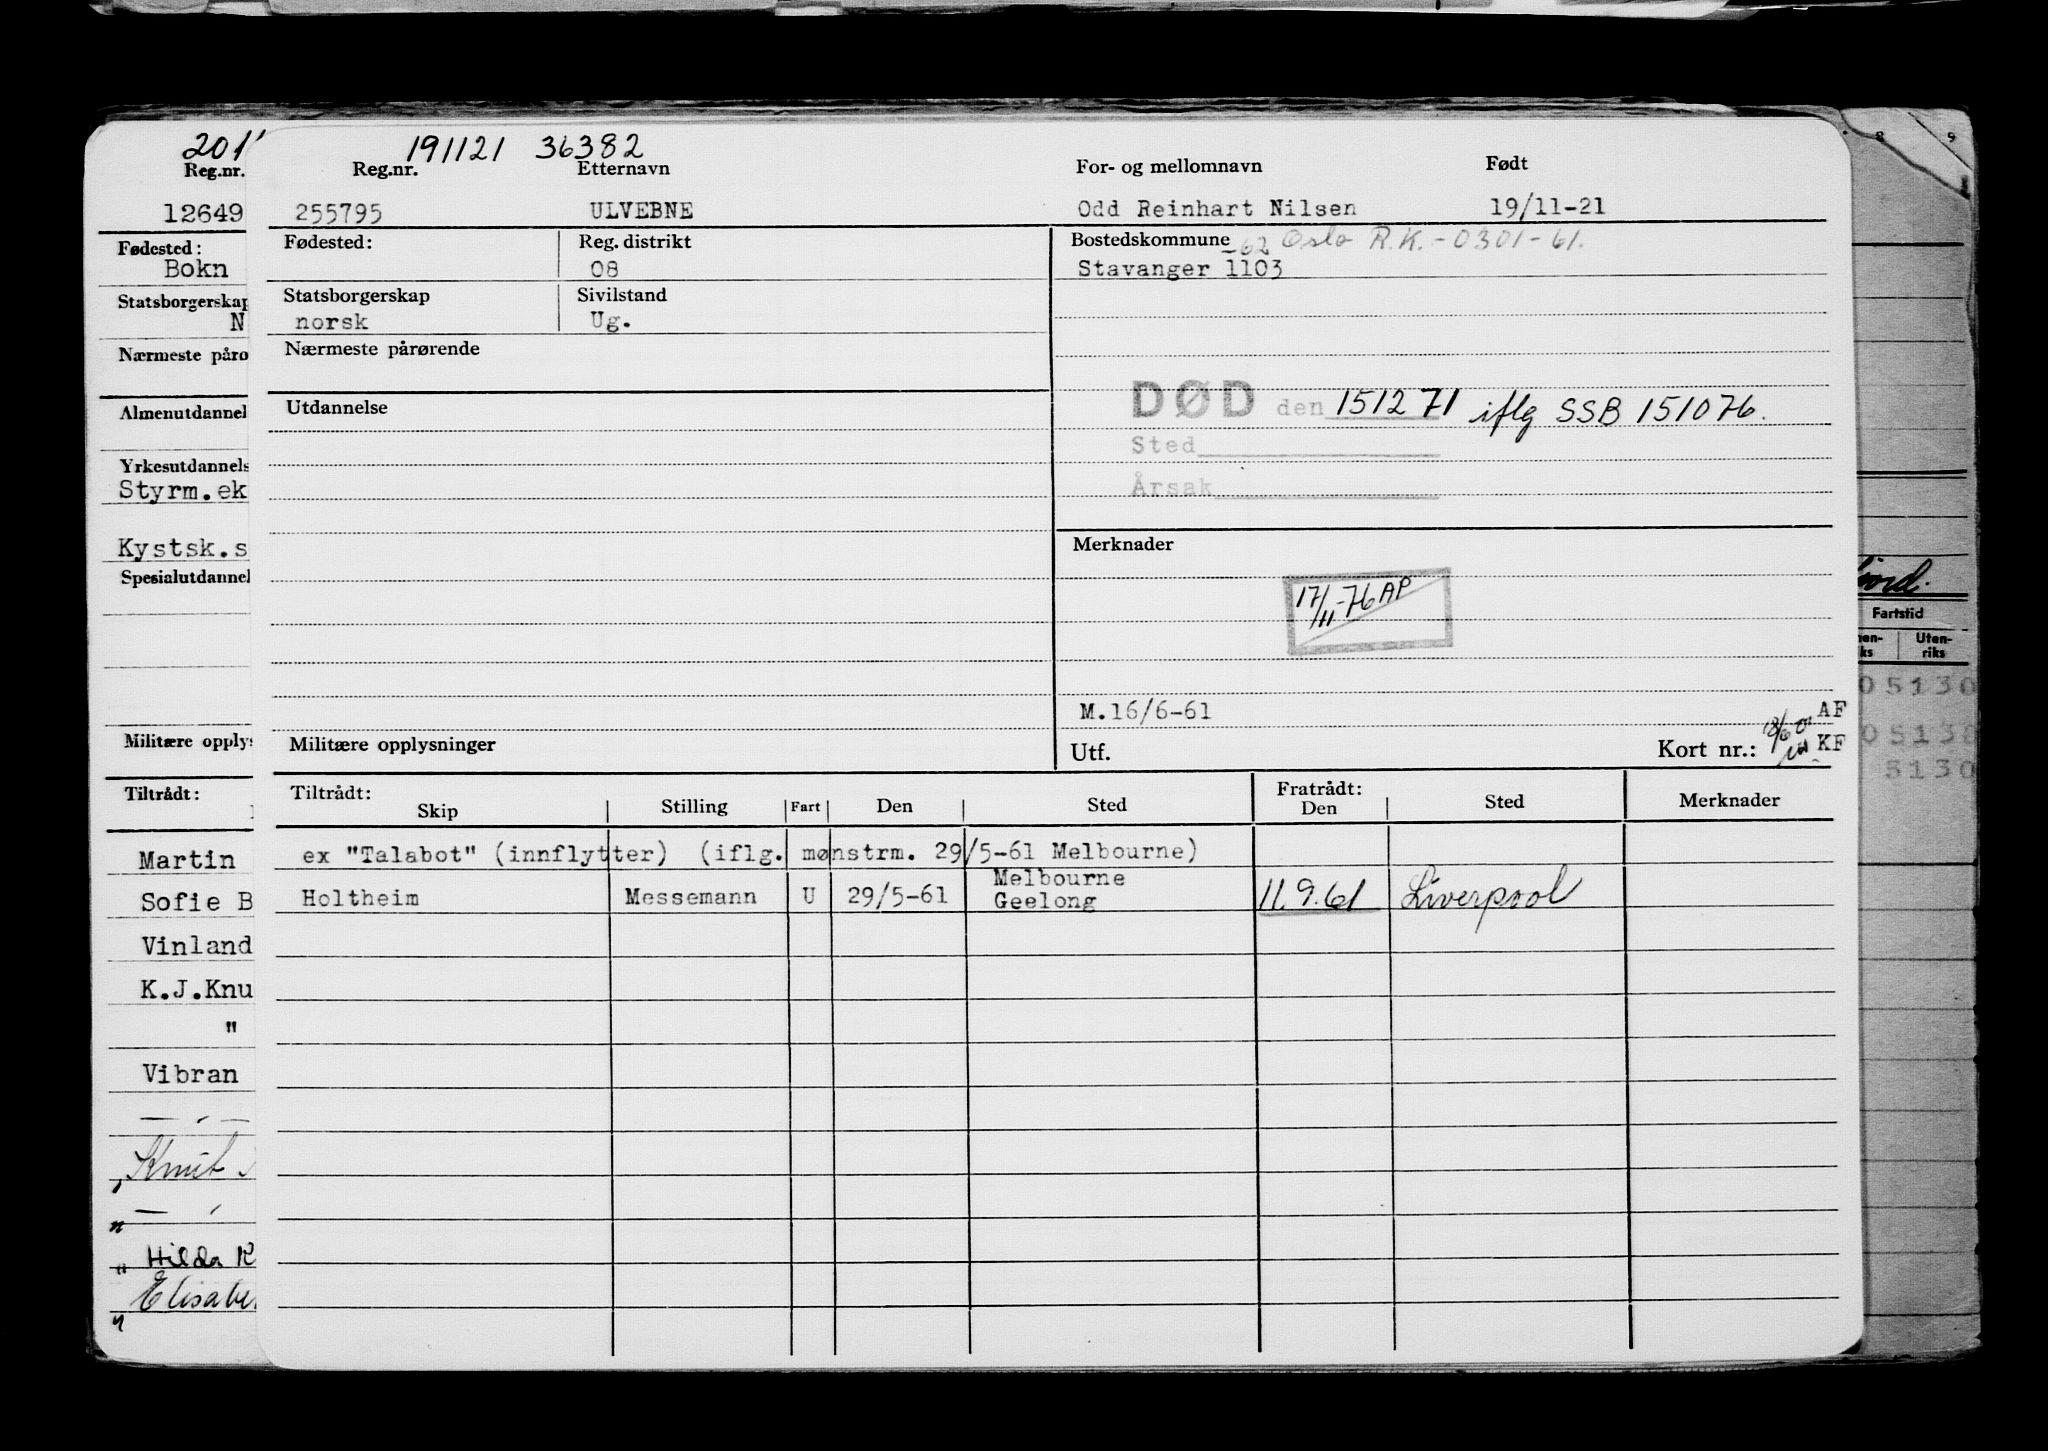 8 9
191121 36382
Reg.nr. Etternavn For- og mellomnavn Født
255795 ULVEBNE Odd Reinhart Nilsen 19/11-21
Fødested: Reg. distrikt Bostedskommune -62 Oslo R.K. - 0301-61.
08 Stavanger 1103
Statsborgerskap Sivilstand
norsk Ug.
Nærmeste pårørende
DØD den 151271 iflg SSB 151076.
Utdannelse
Sted
Årsak
Merknader
17/11-76 AP
M.16/6-61
AF
Militære opplysninger Utf. Kort nr.: KF
Tiltrådt: Fratrådt:
Skip Stilling Fart Den Sted Den Sted Merknader
ex "Talabot" (innflytter) (iflg. mønstrm. 29/5-61 Melbourne)
Melbourne
Holtheim Messemann U 29/5-61 Geelong 11.9.61 Liverpool
201
Reg.nr.
12649
Fødested:
Bokn
Statsborgerskap
N
Nærmeste påro
Almenutdannel
Yrkesutdannels
Styrm.ek
Kystsk.s
Spesialutdannel
Militære opplys
Tiltrådt:
Martin
Sofie B
Vinland
K.J.Knu
"
Vibran
Knut
Hilda K
Elisabe
Fartstid
nen-
ks
Uten-
riks
05130
05138
5130